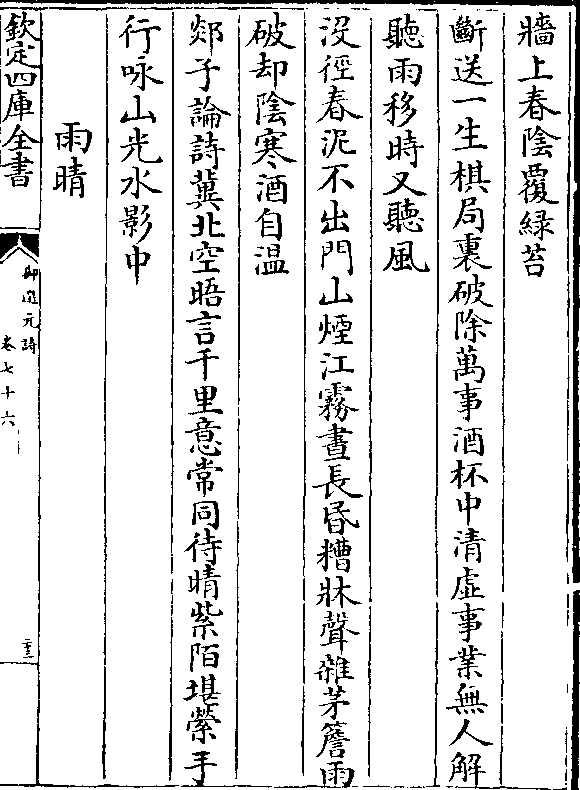 牆上春陰覆緑苔
斷送一生棋局裏破除萬事酒杯中清虛事業無人解
聽雨移時又聽風
没徑春泥不出門山煙江霧晝長昏糟牀聲雜茅簷雨
破却陰寒酒自温
郯子論詩冀北空晤言千里意常同待晴紫陌堪縈手
行咏山光水影中
雨晴
欽定四庫全書
御選元詩
卷七十六